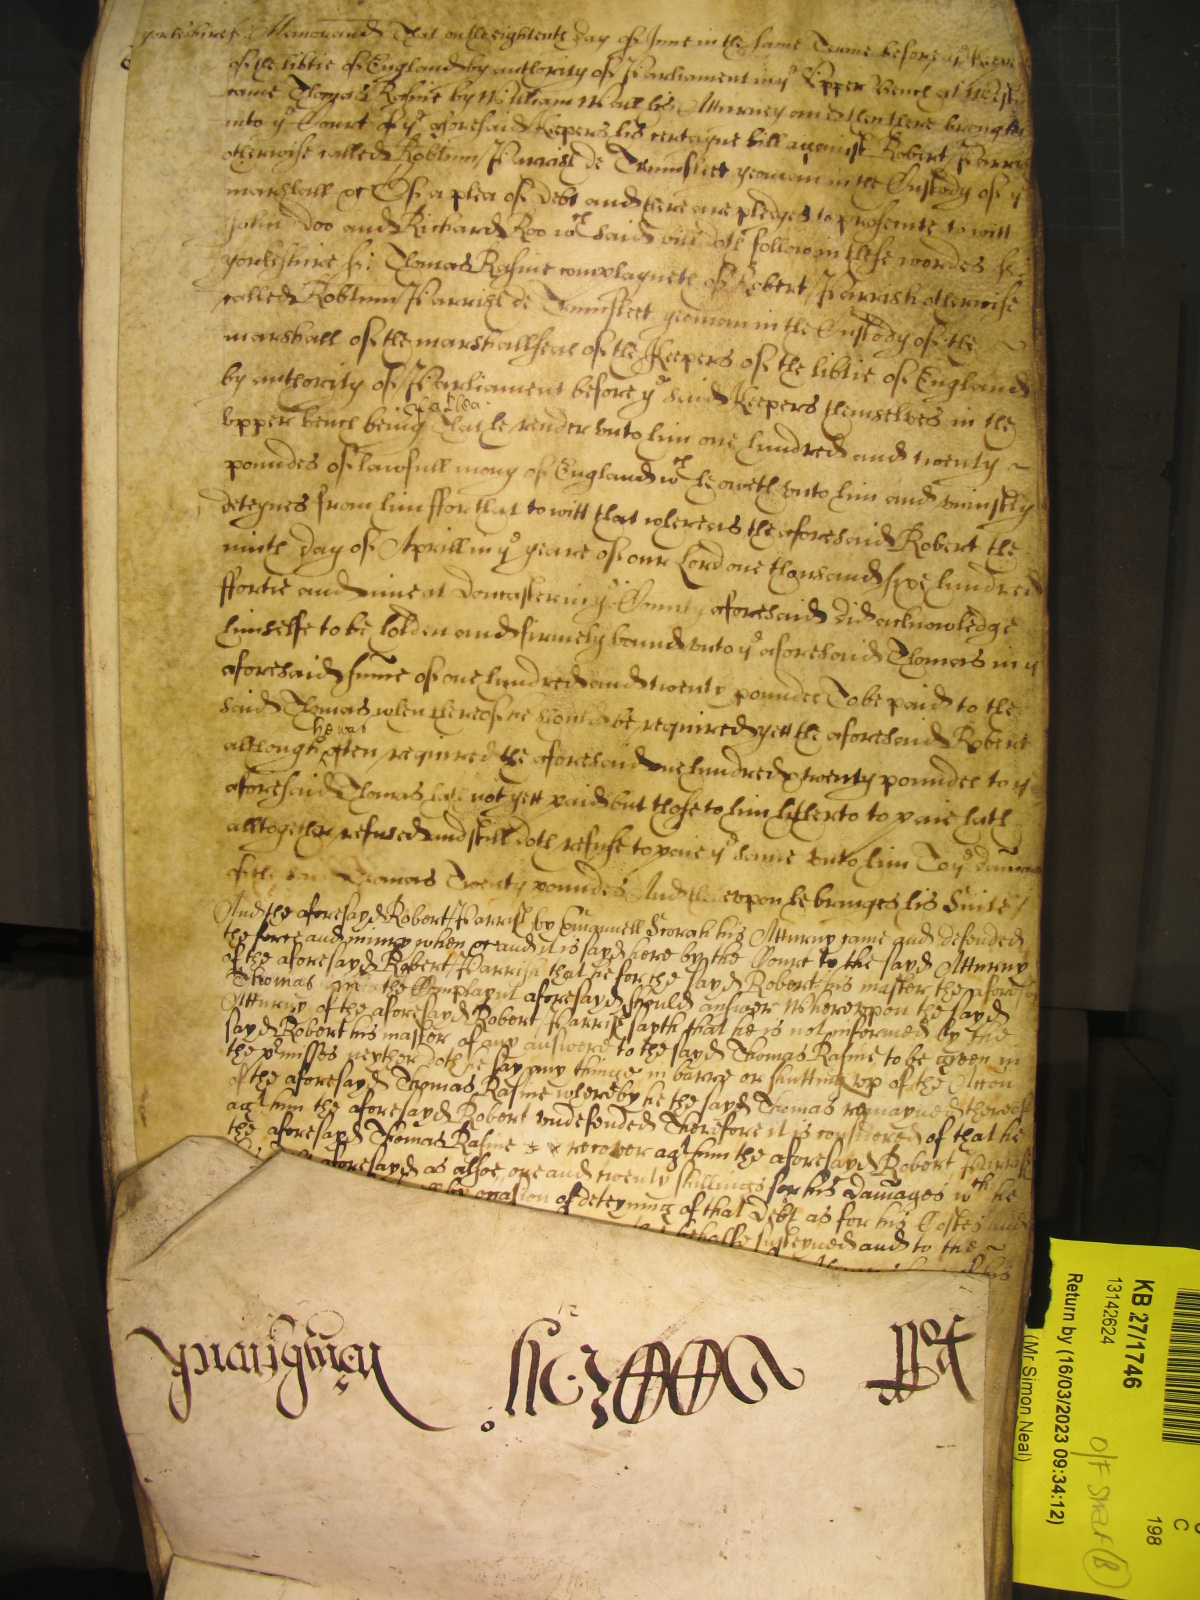 yorkeshire ss. Memorand That on the eightenth day of June in the same Terme before ye Keep
of the libtie of England by authority of Parliament in ye Upper Bench at West
came Thomas Rasine by William Wall his Atturney and then there brought
into ye Court of ye aforesaid Keepers his certayne bill against Robert Parris
otherwise called Robtum Parrish de Trumfleet yeoman in the Custody of ye
marshall &c Of a plea of debt and there are pledges to prosecute to witt
John Doo and Richard Roo wch said bill doth follow in these wordes ss:
yorkeshire ss: Thomas Rasine complayneth of Robert Parrish otherwise
called Robtum Parrish de Trumfleet yeoman in the Custody of the
marshall of the marshallsea of the Keepers of the libtie of England
by authority of Parliament before ye said Keepers themselves in the
of a plea
upper bench being That he render unto him one hundred and twenty
poundes of lawfull mony of England wch he oweth unto him and uniustly
deteynes from him ffor that to witt that whereas the aforesaid Robert the
ninth day of Aprill in ye yeare of our Lord one thowsand sixe hundred
ffortie and nine at Doncaster in ye County aforesaid did acknowledge
himselfe to be holden and firmely bound unto ye aforesaid Thomas in ye
aforesaid summe of one hundred and twenty poundes To be paid to the
said Thomas when thereof he should be required yett the aforesaid Robert
he was
although often required the aforesaid one hundred & twenty poundes to ye
aforesaid Thomas hath not yett paid but those to him hitherto to paie hath
alltogether refused and still doth refuse to paie ye same unto him To ye damage
of the said Thomas Twenty poundes And thereupon he bringes his Suite /
And the aforesayd Robert Parrish by Emanuell Scorah his Atturny came and defended
the force and iniury when &c and it is sayd here by the Court to the sayd Atturny
of the aforesayd Robert Parrish that he for the sayd Robert his master the aforesayd
Thomas the Complaynt aforesayd should answer Whereupon the sayd
Atturny of the aforesayd Robert Parrish sayth that he is not informed by the
sayd Robert his master of any answere to the sayd Thomas Rasine to be geven in
the pmisses neyther doth he say any thinge in barre or shutting up of the Accon
of the aforesayd Thomas Rasine whereby he the sayd Thomas remayned thereof
agt him the aforesayd Robert undefended Therefore it is considered of that he
the aforesayd Thomas Rasine recover agt him the aforesayd Robert Parrish
aforesayd as alsoe one and twenty shillings for his damages wch he
by occasion of deteyning of that Debt as for his Costes and
behalfe susteyned and to the
his
KB 27/1746
13142624
Return by (16/03/2023 09:34:12)
(Mr Simon Neal)
O/F Straf (B)
C
198